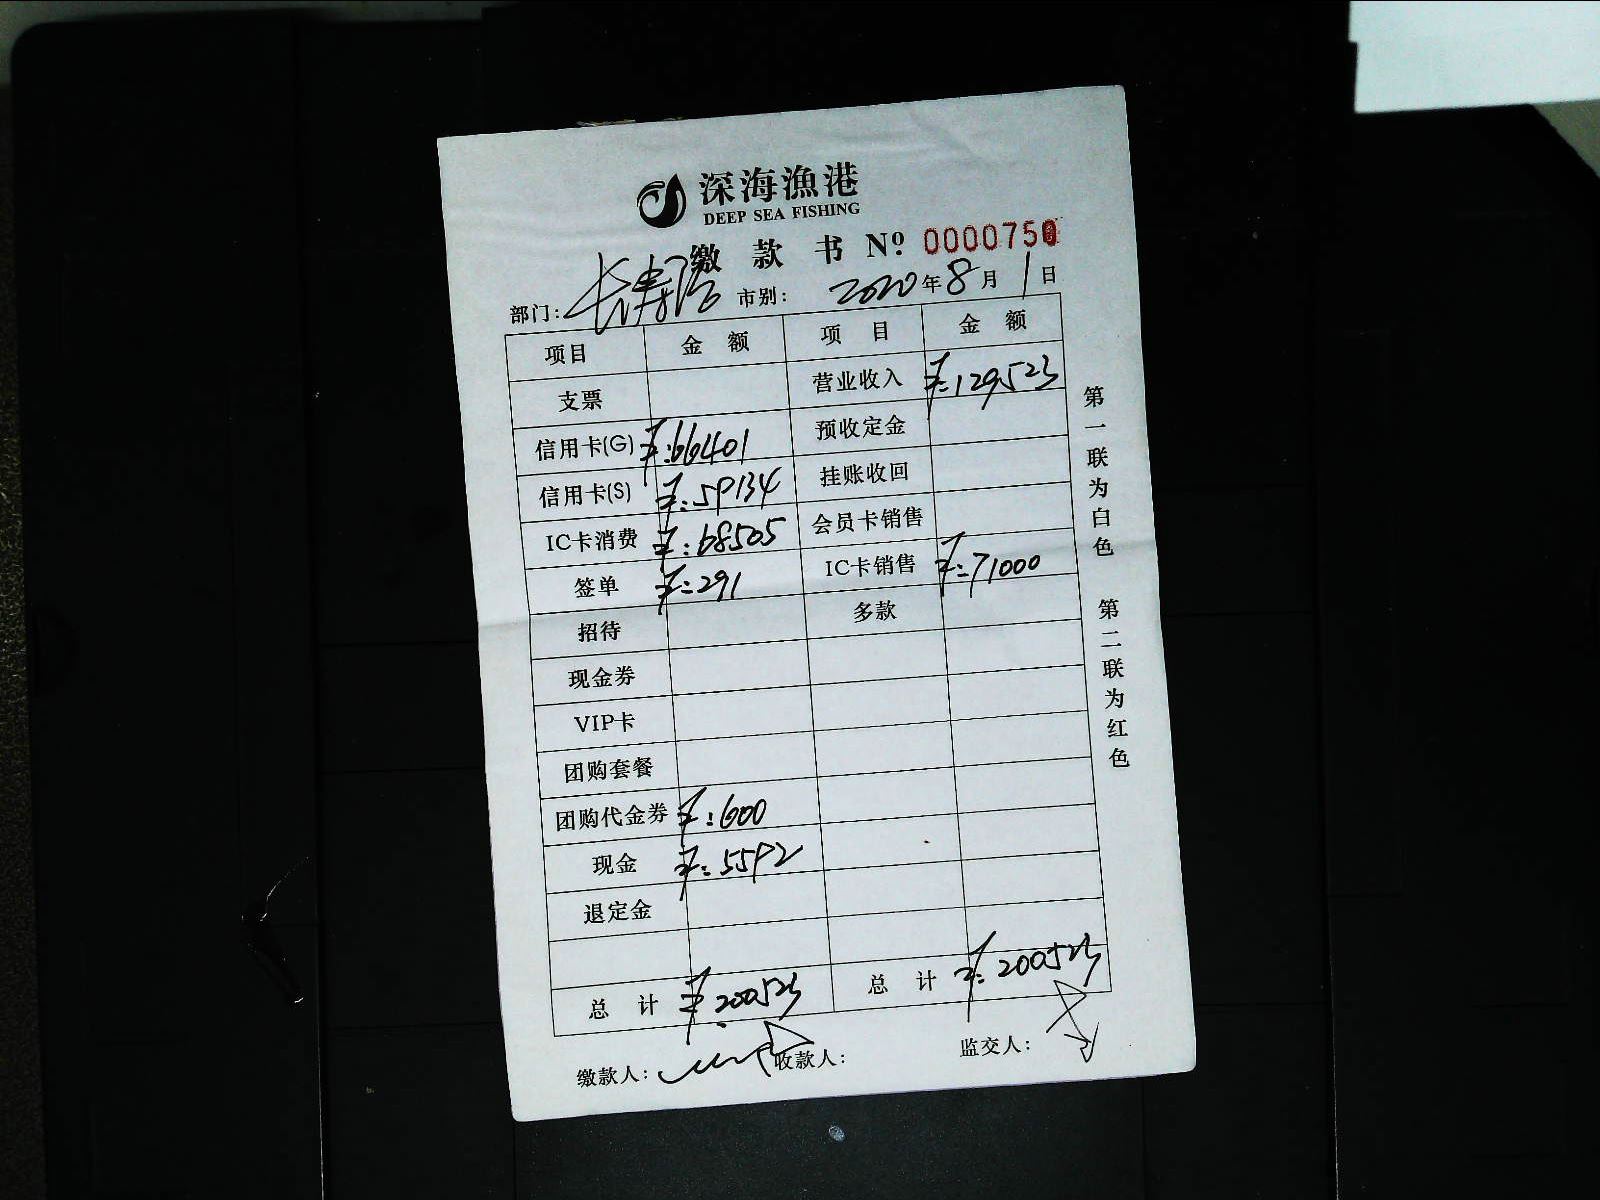 深海漁港
DEEP SEA FISHING
缴款书 Nº: 0000750
部门: 长寿路 市别: 2020年8月1日
项目 金额 项目 金额
支票 营业收入 ¥:129523
信用卡(G) ¥:66401 预收定金
信用卡(S) ¥:59134 挂账收回
IC卡消费 ¥:68505 会员卡销售
签单 ¥:291 IC卡销售 ¥:71000
招待 多款
现金券
VIP卡
团购套餐
团购代金券 ¥:600
现金 ¥:5592
退定金
总计 ¥:200523 总计 ¥:200523
缴款人: 收款人: 监交人:
第一联为白色 第二联为红色